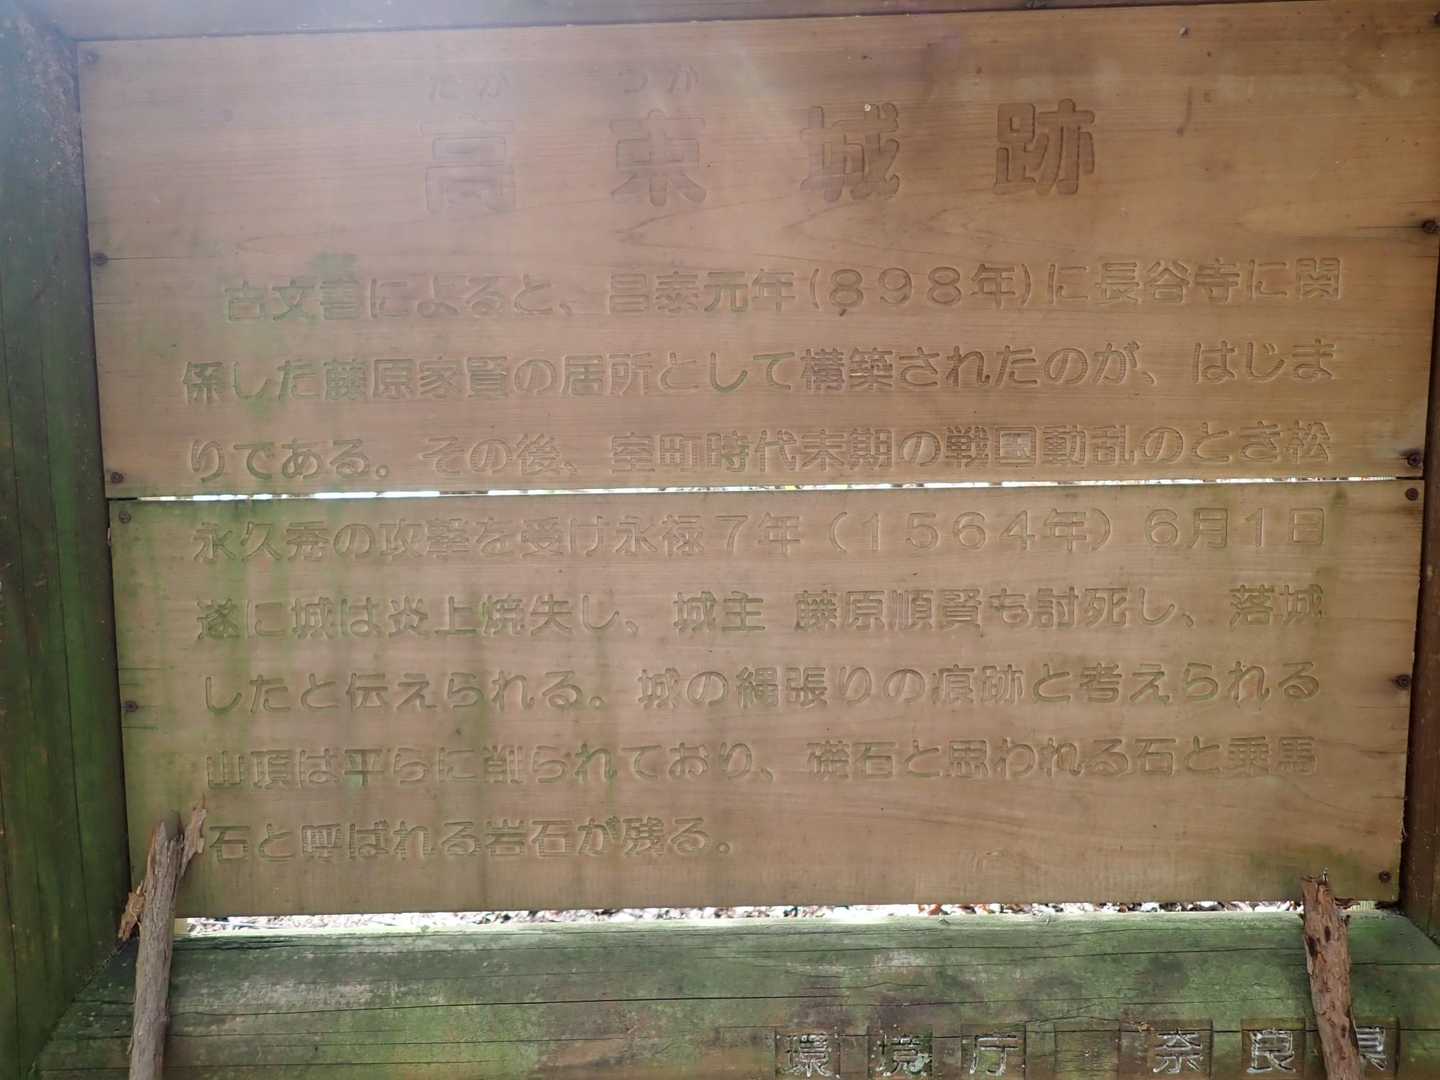 たか つか
高束城跡
古文書によると、昌泰元年(898年)に長谷寺に関
係した藤原家賢の居所として構築されたのが、はじま
りである。その後、室町時代末期の戦国動乱のとき松
永久秀の攻撃を受け永禄7年(1564年)6月1日
遂に城は炎上焼失し、城主 藤原順賢も討死し、落城
したと伝えられる。城の縄張りの痕跡と考えられる
山頂は平らに削られており、礎石と思われる石と乗馬
石と呼ばれる岩石が残る。
環境庁 奈良県